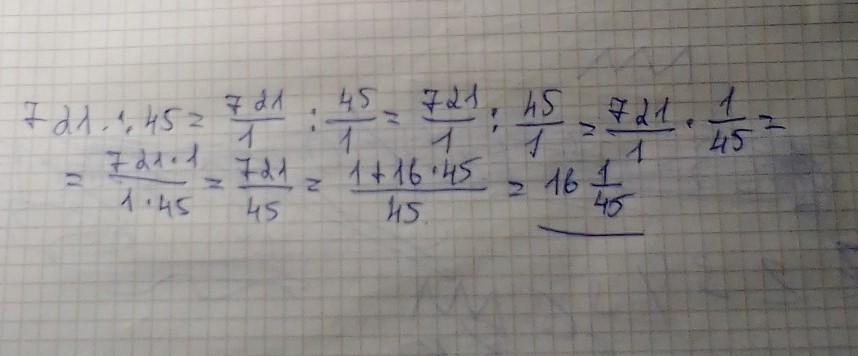 721 : 45 = 721/1 : 45/1 = 721/1 : 45/1 = 721/1 · 1/45 =
= 721·1/1·45 = 721/45 = 1+16·45/45 = 16 1/45